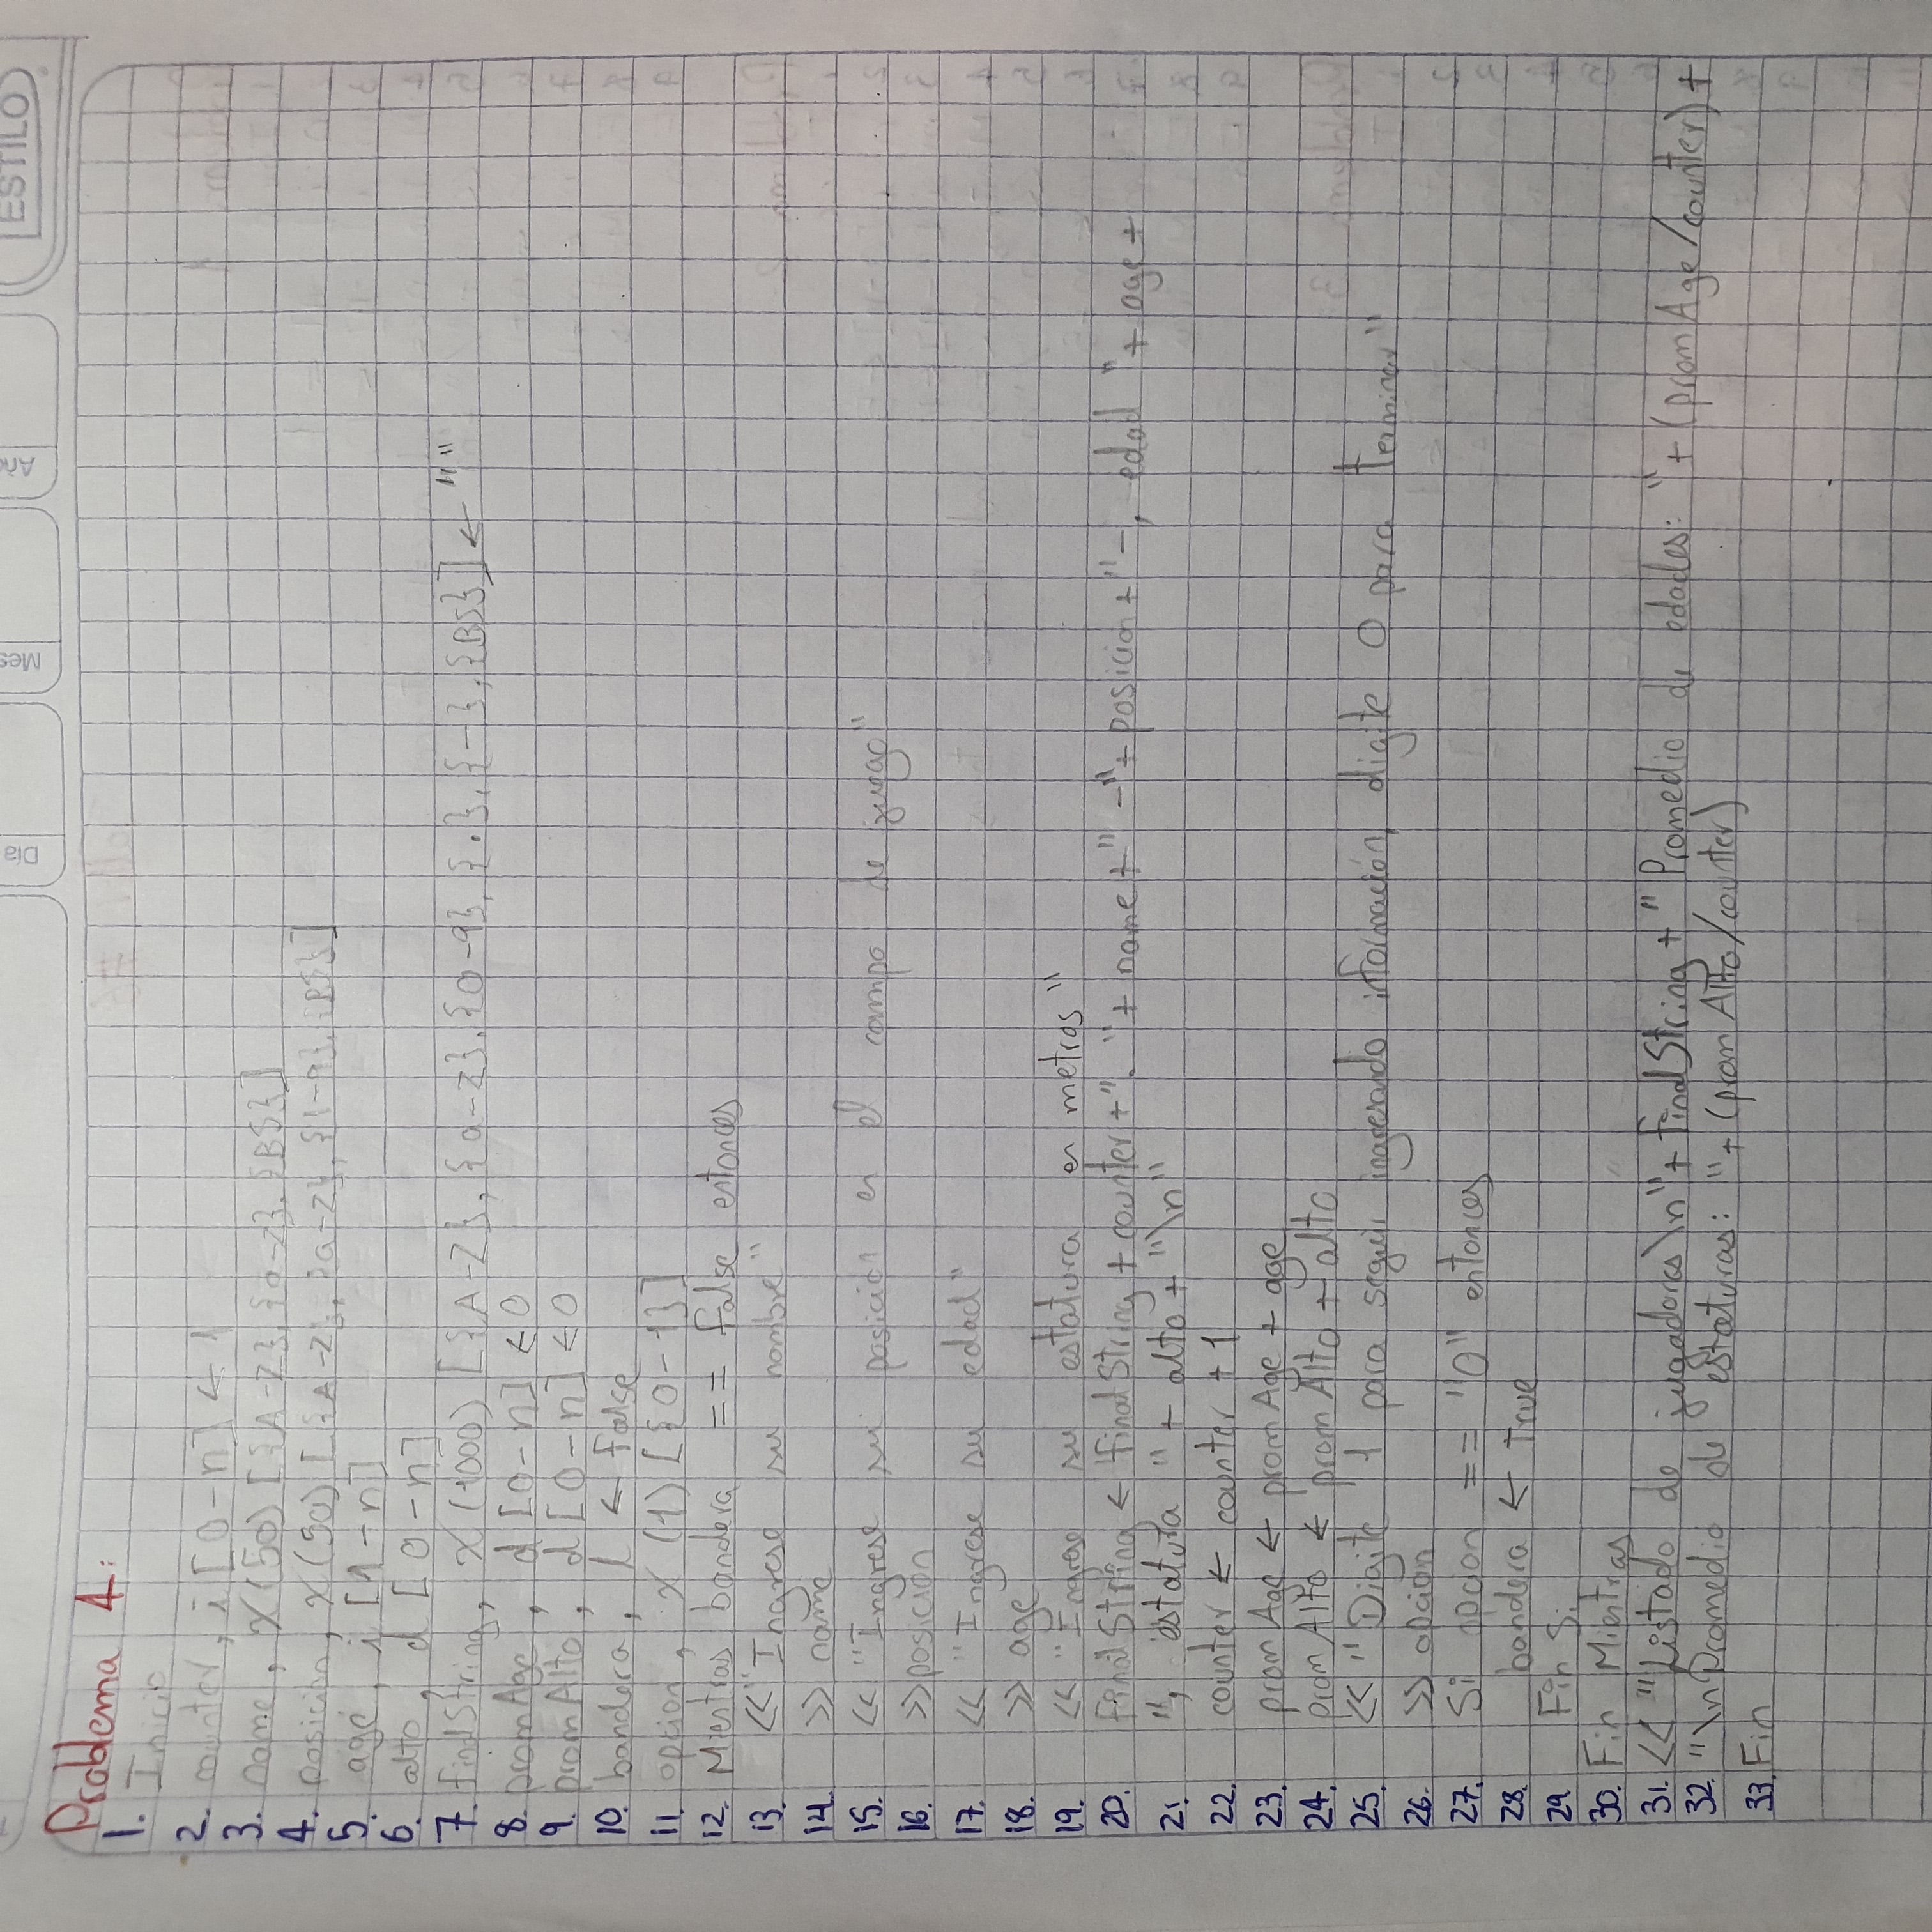 Día
Mes
Año
ESTILO
Problema 4:
1. Inicio
2. counter, i [0-n] ← 1
3. name, X(50) [{A-Z}, {a-z}, {BS}]
4. posicion, X(50) [{A-Z}, {a-z}, {1-9}, {BS}]
5. age, i [1-n]
6. alto, d [0-n]
7. finalString, X(1000) [{A-Z}, {a-z}, {0-9}, {.}, {-}, {BS}] ← ""
8. promAge, d [0-n] ← 0
9. promAlto, d [0-n] ← 0
10. bandera, l ← false
11. option, X (1) [{0-1}]
12. Mientras bandera == false entonces
13. << "Ingrese su nombre"
14. >> name
15. << "Ingrese su posición en el campo de juego"
16. >> posición
17. << "Ingrese su edad"
18. >> age
19. << "Ingrese su estatura en metros"
20. finalString ← finalString + counter + ". " + name + " -" + posicion + "-, edad " + age +
21. ", estatura " + alto + "\n"
22. counter ← counter + 1
23. promAge ← promAge + age
24. promAlto ← promAlto + alto
25. << "Digite 1 para seguir información, digite 0 para terminar"
26. >> opción
27. Si opcion == "0" entonces
28. bandera ← True
29. Fin Si
30. Fin Mientras
31. << "Listado de jugadores\n" + finalString + "Promedio de edades: " + (promAge/counter) +
32. "\nPromedio de estaturas: " + (promAlto/counter)
33. Fin